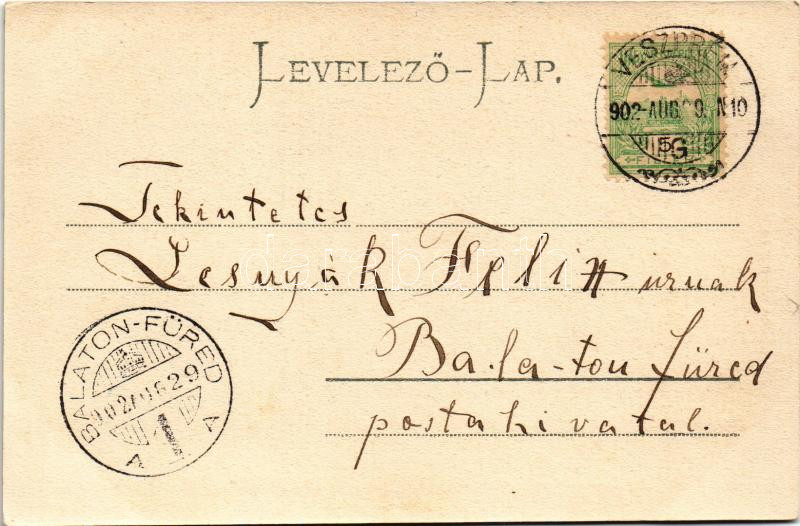 LEVELEZŐ-LAP.
VESZPRÉM
902 AUG 29. N10
5
G
FI
Tekintetes
Lesnyák Felix urnak
Bala-ton füred
postahivatal.
BALATON-FÜRED
902 AUG 29
1
A A
darabanth